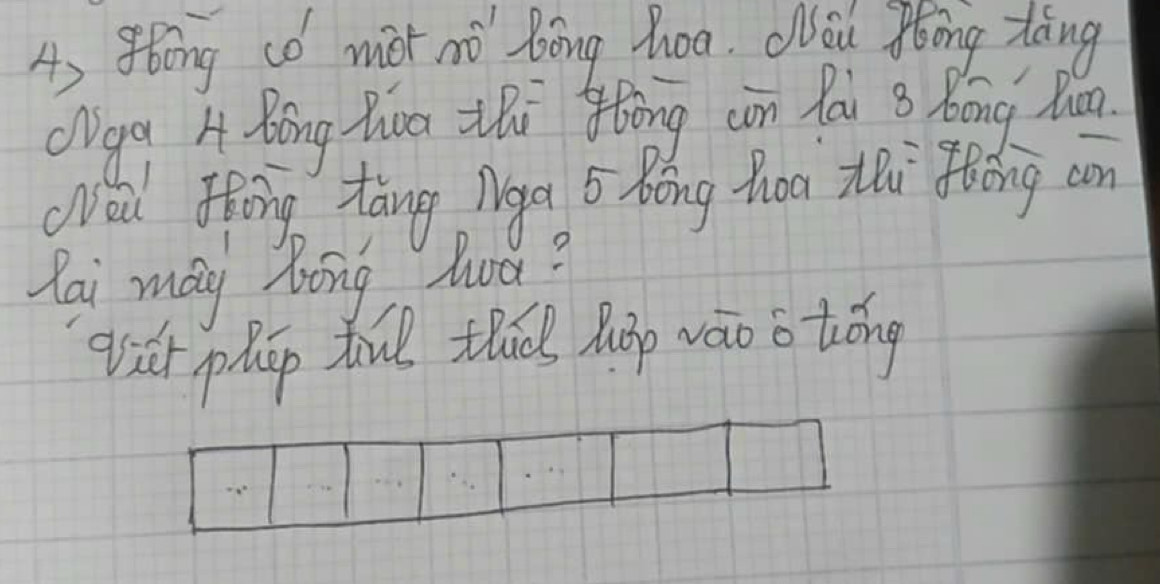 4, Hồng có một số bông hoa. Nếu Hồng tặng
Nga 4 bông hoa thì Hồng còn lại 3 bông hoa.
Nếu Hồng tặng Nga 5 bông hoa thì Hồng còn
lại mấy bông hoa?
Viết phép tính thích hợp vào ô trống
... ... ... ... ...